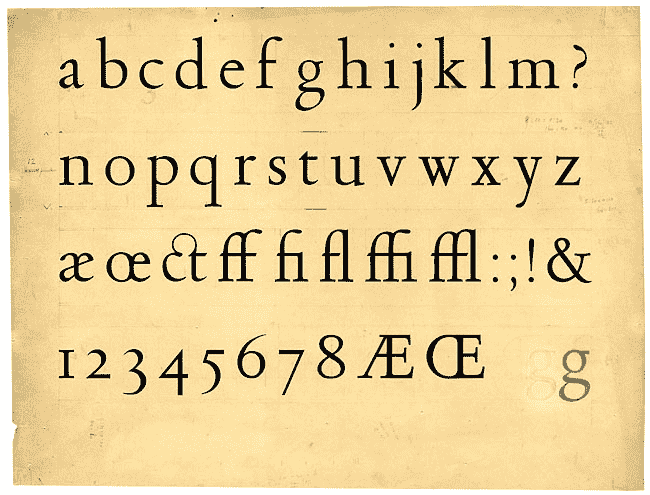 a b c d e f g h i j k l m ?
n o p q r s t u v w x y z
æ œ ct ff fi fl ffi ffl : ; ! &
1 2 3 4 5 6 7 8 Æ Œ g g